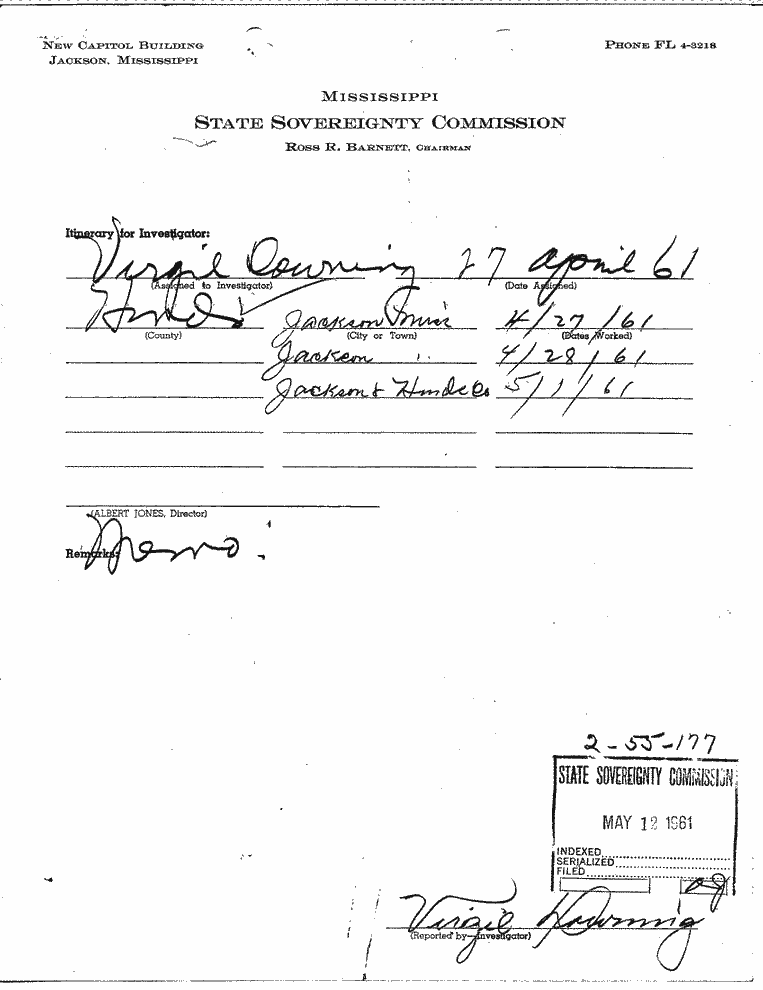 NEW CAPITOL BUILDING
JACKSON, MISSISSIPPI
PHONE FL 4-3218
MISSISSIPPI
STATE SOVEREIGNTY COMMISSION
ROSS R. BARNETT, CHAIRMAN
Itinerary for Investigator:
Virgil Downing 27 April 61
(Assigned to Investigator) (Date Assigned)
Hinds Jackson Miss 4/27/61
(County) (City or Town) (Dates Worked)
Jackson " 4/28/61
Jackson & Hinds Co 5/1/61
(ALBERT JONES, Director)
Remarks: Memo.
2-55-177
STATE SOVEREIGNTY COMMISSION
MAY 12 1961
INDEXED
SERIALIZED
FILED
Virgil Downing
(Reported by—Investigator)